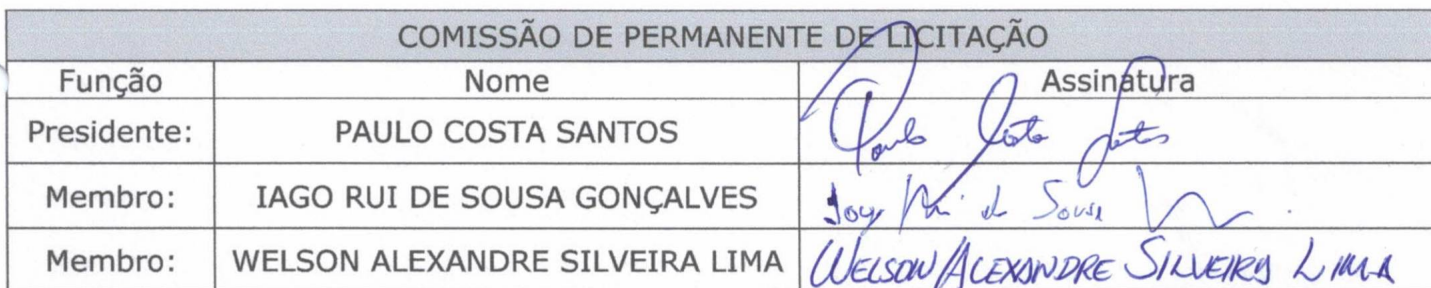 COMISSÃO DE PERMANENTE DE LICITAÇÃO
Função Nome Assinatura
Presidente: PAULO COSTA SANTOS Paulo Costa Santos
Membro: IAGO RUI DE SOUSA GONÇALVES Iago Rui de Sousa
Membro: WELSON ALEXANDRE SILVEIRA LIMA WELSON ALEXANDRE SILVEIRA LIMA